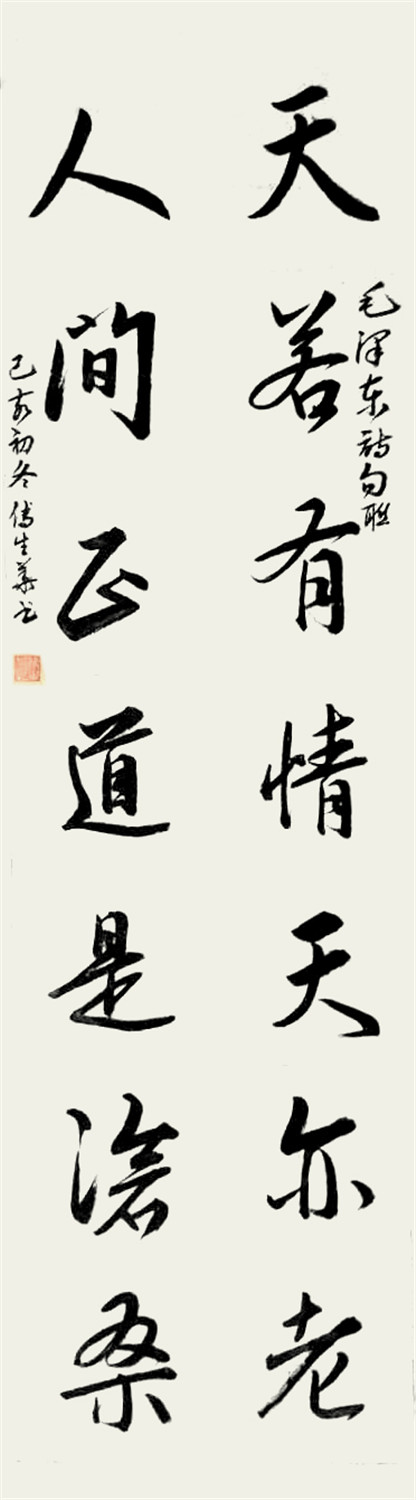 毛泽东詩句联
天若有情天亦老
人间正道是滄桑
己亥初冬傅生義书